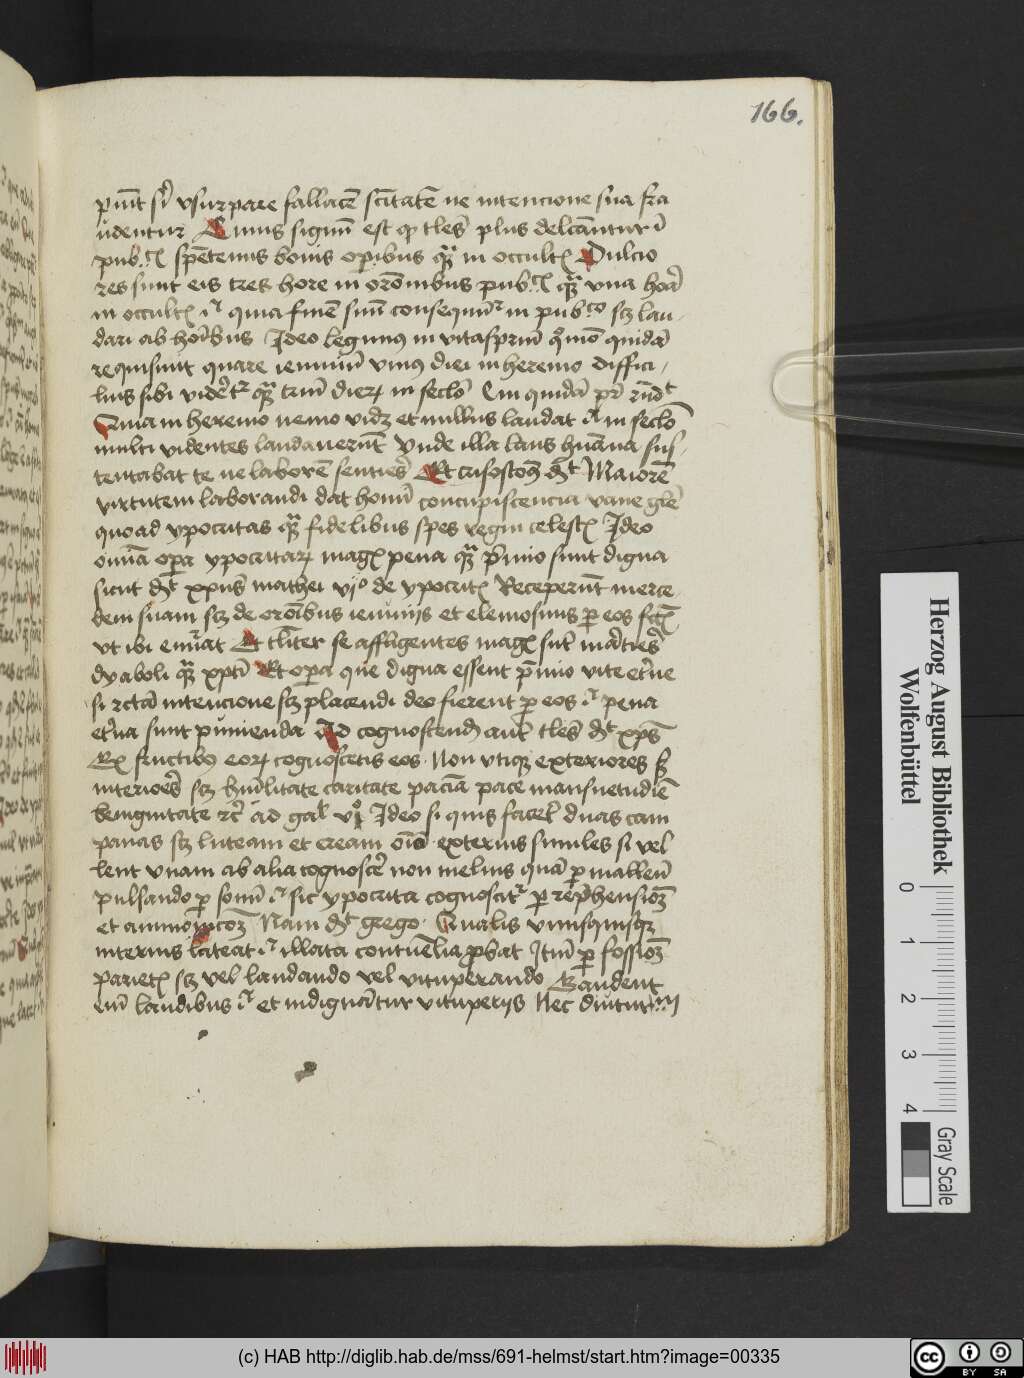 166.
punt sibi vsurpare fallacem sanctitatem ne intencione sua fra
udentur Cuius signum est quod tales plus delectantur in
publicis bonis operibus quam in occultis Dulcio
res sunt eis tres hore in oronibus publicis quam vna hora
in occultis quia finem suum consequntur in publico scilicet lau-
dari ab hominibus Ideo legimus in vitaspatrum quomodo quidam
requisiuit quare ieiunium vnius diei in heremo diffici-
lius sibi videretur quam trium dierum in seculo Cui quidam pater respondit
Quia in heremo nemo videt et nullus laudat in seculo
multi videntes laudauerunt vnde illa laus humana sus-
tentabat te ne laborem sentires Et crisostomus dicit Maiorem
virtutem laborandi dat homini concupiscencia vane glorie
quoad ypocritas quam fidelibus spes regni celestis Ideo
omnia opera ypocritarum magis pena quam premio sunt digna
sicut dicit xpus mathei vjo de ypocritis Receperunt merce
dem suam scilicet de oronibus ieiunijs et elemosinis per eos factis
vt ibi Et taliter se affligentes magis sunt martires
dyaboli quam xpi Et opera que digna essent premio vite eterne
si recta intencione scilicet placendi deo fierent per eos pena
eterna sunt punienda Ad cognoscendum autem tales dicit xps
Ex fructibus eorum cognoscetis eos Non vtique exteriores sed
interiores scilicet humilitate caritate paciencia pace mansuetudine
benignitate etc ad gal vo Ideo si quis faceret duas cam
panas scilicet luteam et eream omnino exterius similes si vel
lent vnam ab alia cognoscere non melius quam per malleum
pulsando per sonum sic ypocrita cognoscitur per reprehensionem
et Nam dicit grego Qualis vnusquisque
interius lateat illata contumelia probat Item per fossionem
parietis scilicet vel laudando vel vituperando Gaudent
enim laudibus et indignantur vituperijs Nec
Herzog August Bibliothek
Wolfenbüttel
0 1 2 3 4
Gray Scale
(c) HAB http://diglib.hab.de/mss/691-helmst/start.htm?image=00335
cc BY SA